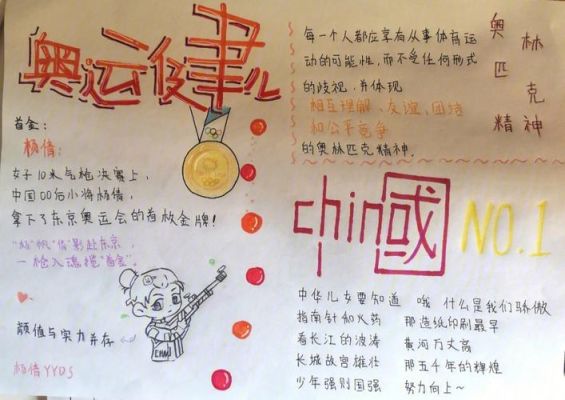 奥运健儿
首金:
杨倩:
女子10米气枪决赛上,
中国00后小将杨倩,
拿下了东京奥运会的首枚金牌!
一枪入魂揽"首金".
颜值与实力并存
杨倩YYDS
每一个人都应享有从事体育运
动的可能性,而不受任何形式
的歧视,并体现
相互理解、友谊、团结
和公平竞争
的奥林匹克精神.
奥林匹克
精神
chin国
NO.1
中华儿女要知道 哦 什么是我们骄傲
指南针和火药 那造纸印刷最早
看长江的波涛 黄河万丈高
长城故宫雄壮 那五千年的辉煌
少年强则国强 努力向上~